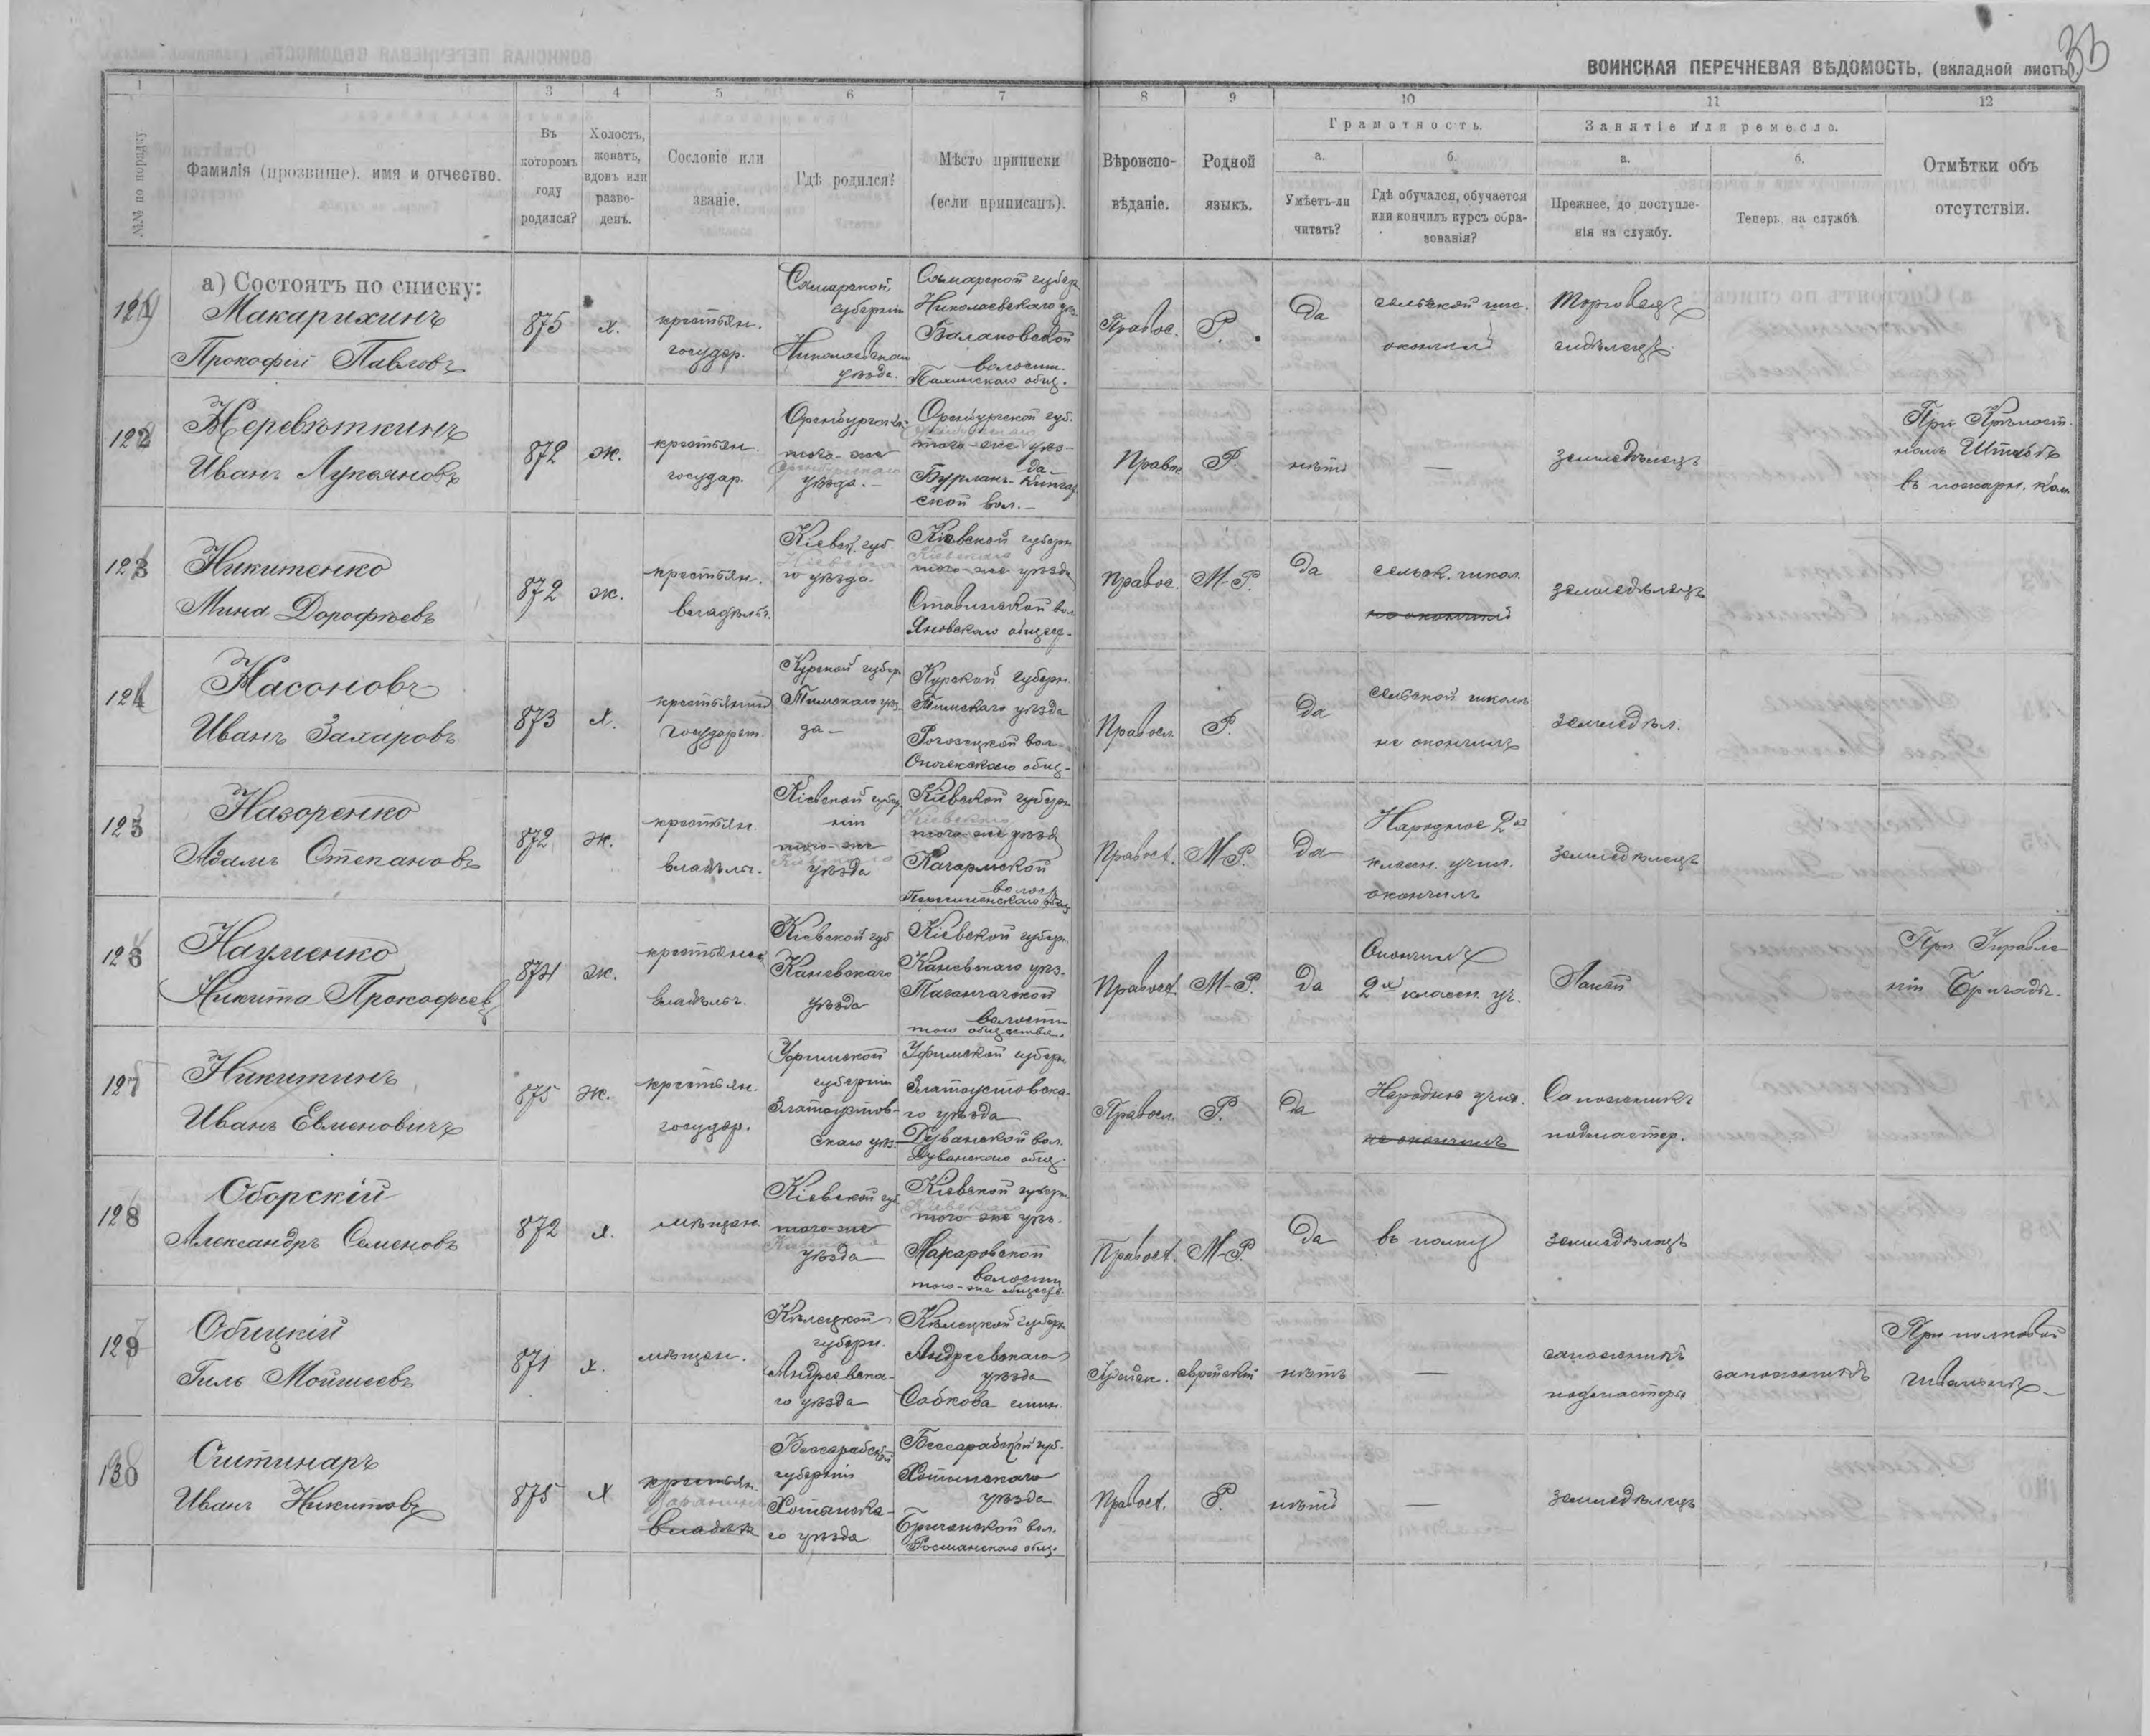 33
ВОИНСКАЯ ПЕРЕЧНЕВАЯ ВѢДОМОСТЬ, (вкладной листъ).
1 1 3 4 5 6 7 8 9 10 11 12
№№ по порядку
Фамилія (прозвище), имя и отчество.
Въ которомъ году родился?
Холостъ, женатъ, вдовъ или разведенъ.
Сословіе или званіе.
Гдѣ родился?
Мѣсто приписки (если приписанъ).
Вѣроисповѣданіе.
Родной языкъ.
Грамотность.
а. Умѣетъ-ли читать?
б. Гдѣ обучался, обучается или кончилъ курсъ образованія?
Занятіе или ремесло.
а. Прежнее, до поступленія на службу.
б. Теперь на службѣ.
Отмѣтки объ отсутствіи.
а) Состоятъ по списку:
121
Макарихинъ
Прокофій Павловъ
875
х.
крестьян.
государ.
Самарской
губерніи
Николаевскаго
уѣзда.
Самарской губер.
Николаевскаго
Балаковской
волости
Правос.
Р.
Да
сельской шк.
окончилъ
Торговецъ
122
Иванъ Лукьяновъ
872
ж.
крестьян.
государ.
Оренбургской
того-же
Оренбургскаго
уѣзда.
Оренбургской губ.
того-же уѣз-
да
ской вол.
Правос.
Р.
нѣтъ
—
земледѣлецъ
При Крѣпост.
номъ Штабѣ
въ пожарн. ком.
123
Никитенко
Мина Дорофѣевъ
872
ж.
крестьян.
владѣльч.
Кіевск. губ.
Кіевска
го уѣзда.
Кіевской губерн.
Кіевскаго
того-же уѣзда
Яновскаго общест.
Правос.
М-Р.
Да
сельск. школ.
не окончилъ
земледѣлецъ
124
Насоновъ
Иванъ Захаровъ
873
х.
крестьянинъ
государст.
Курской губер.
Тимскаго уѣз-
да
Курской губерн.
Тимскаго уѣзда
Рогозецкой вол.
Правосл.
Р.
Да
сельской школѣ
не окончилъ
земледѣл.
125
Назоренко
Адамъ Степановъ
872
ж.
крестьян.
владѣльч.
Кіевской губер
ніи
того-же
Кіевскаго
уѣзда
Кіевской губерн.
Кіевскаго
того-же уѣзд
волост.
Правосл.
М-Р.
Да
Народное 2хъ
классн. учил.
окончилъ
земледѣлецъ
126
Науменко
Никита Прокофьевъ
874
ж.
владѣльч.
Кіевской губ.
Каневскаго
уѣзда
Кіевской губер.
Каневскаго уѣз.
Таганчагской
волости
того общества
Правосл.
М-Р.
Да
Окончилъ
2х классн. уч.
При Управле-
ніи Бригады.
127
Никитинъ
Иванъ Евменовичъ
875
ж.
крестьян.
государ.
Уфимской
губерніи
Златоустов-
скаго уѣз.
Уфимской губер.
Златоустовска-
го уѣзда
Дуванской вол.
Дуванскаго общ.
Правосл.
Р.
Да
Народное учил.
не окончилъ
Сапожникъ
подмастер.
128
Оборскій
Александръ Семеновъ
872
х.
мѣщан.
Кіевской губ.
того-же
Кіевскаго
уѣзда
Кіевской губерн.
Кіевскаго
того-же уѣз.
Макаровской
волости
того-же общест.
Правосл.
М-Р.
Да
въ полку
земледѣлецъ
129
Обицкій
Гиль Мойшеевъ
871
х.
мѣщан.
Кѣлецкой
губерн.
Андреевска-
го уѣзда
Кѣлецкой губерн.
Андреевскаго
уѣзда
Собкова
Іудейск.
еврейскій
нѣтъ
—
сапожникъ
подмастерье
сапожникъ
При полковой
швальнѣ
130
Ститинаръ
Иванъ Никитовъ
875
х
крестьян.
владѣл.
Бессарабской
губерніи
Хотинска-
го уѣзда
Бессарабской губ.
Хотинскаго
уѣзда
Бричанской вол.
Правосл.
Р.
нѣтъ
—
земледѣлецъ